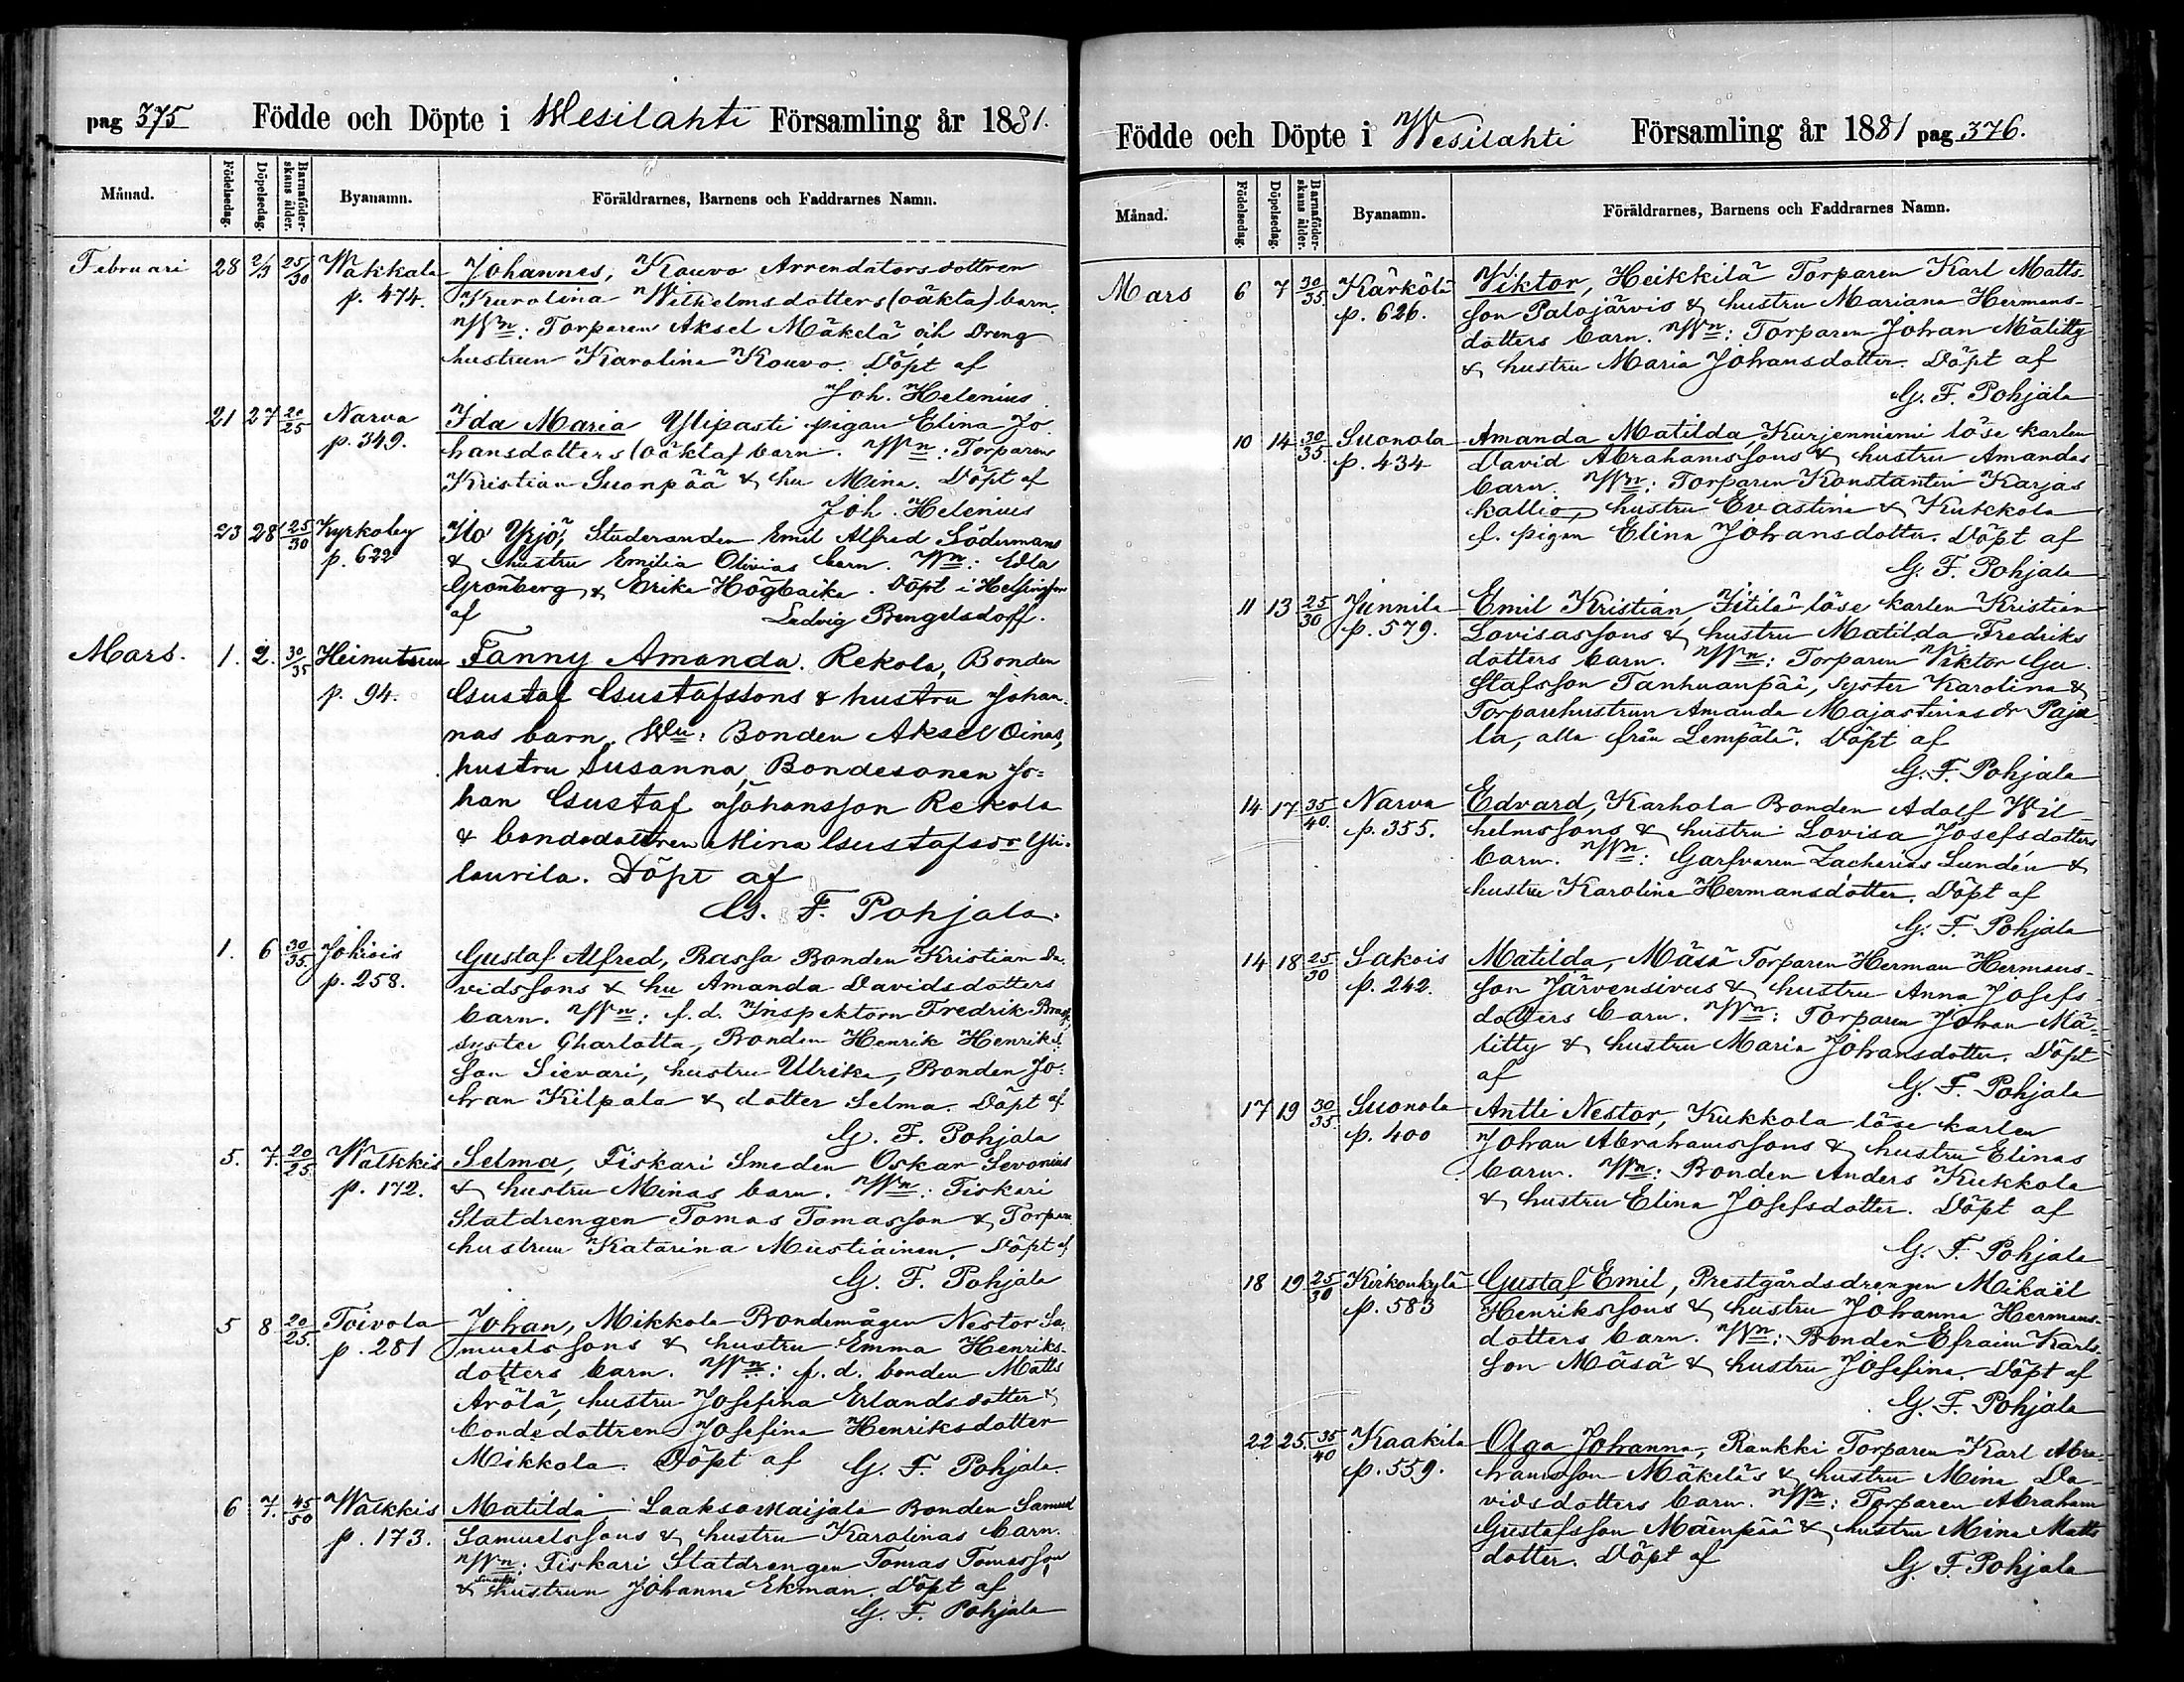 pag 375 Födde och Döpte i Wesilahti Församling år 1881.
Månad. Födelsedag. Döpelsedag. Barnaföderskans ålder. Byanamn. Föräldrarnes, Barnens och Faddrarnes Namn.
Februari 28 2/3 25/30 Wakkala Johannes, Kouvo Arrendatorsdottren
p. 474. Karolina Wilhelmsdotters (oäkta) barn.
Wn: Torparen Aksel Mäkelä och Dreng
hustrun Karolina Kouvo. Döpt af
Joh. Helenius
21 27 20/25 Narva Ida Maria Ylipasti pigan Elina Jo
p. 349. hansdotters (oäkta) barn. Wn: Torparen
Kristian Suonpää & hu Mina. Döpt af
Joh. Helenius
23 28 25/30 Kyrkoby Ilo Yrjö, Studeranden Emil Alfred Södermans
p. 622 & hustru Emilia Olivias barn. Wn: Edla
Grönberg & Erika Högbacka. Döpt i Helsingfors
af Ludvig Bengelsdorff.
Mars. 1. 2. 30/35 Heinusuu Fanny Amanda. Rekola, Bonden
p. 94. Gustaf Gustafssons & hustru Johan-
nas barn. Wn: Bonden Aksel Oinas,
hustru Susanna, Bondesonen Jo=
han Gustaf Johansson Rekola
& bondedottren Mina Gustafsdr Yli-
laurila. Döpt af
G. F. Pohjala.
1. 6 30/35. Jokiois Gustaf Alfred, Rassa Bonden Kristian Da-
p. 258. vidssons & hu Amanda Davidsdotters
barn. Wn: f.d. Inspektorn Fredrik
syster Charlotta, Bonden Henrik Henriks-
son Sievari, hustru Ulrika, Bonden Jo-
han Kilpala & dotter Selma. Döpt af
G. F. Pohjala
5. 7. 20/25. Walkkis Selma, Fiskari Smeden Oskar Sevonius
p. 172. & hustru Minas barn. Wn: Fiskari
Statdrengen Tomas Tomasson & Torpare
hustrun Katarina Mustiainen. Döpt af
G. F. Pohjala
5 8 20/25. Toivola Johan, Mikkola Bondemågen Nestor Sa
p. 281 muelssons & hustru Emma Henriks-
dotters barn. Wn: f.d. bonden Matts
Arölä, hustru Josefina Erlandsdotter &
bondedottren Josefina Henriksdotter
Mikkola. Döpt af G. F. Pohjala.
6 7. 45/50 Walkkis Matilda, Laaksomaijala Bonden Samuel
p. 173. Samuelssons & hustru Karolinas barn.
Wn: Fiskari Statdrengen Tomas Tomasson
& hustrun Johanna Ekman. Döpt af
G. F. Pohjala
Födde och Döpte i Wesilahti Församling år 1881 pag 376.
Månad. Födelsedag. Döpelsedag. Barnaföderskans ålder. Byanamn. Föräldrarnes, Barnens och Faddrarnes Namn.
Mars 6 7 30/35 Kärkölä Viktor, Heikkilä Torparen Karl Matts-
p. 626. son Palojärvis & hustru Mariana Hermans-
dotters barn. Wn: Torparen Johan Mälitty
& hustru Maria Johansdotter. Döpt af
G. F. Pohjala
10 14 30/35. Suonola Amanda Matilda, Kurjenniemi löse karlen
p. 434 David Abrahamssons & hustru Amandas
barn. Wn: Torparen Konstantin Karjas
kallio, hustru Evastina & Kukkola
f. pigan Elina Johansdotter. Döpt af
G. F. Pohjala
11 13 25/30 Junnila Emil Kristian, Iitilä löse karlen Kristian
p. 579. Lovisassons & hustru Matilda Fredriks
dotters barn. Wn: Torparen Viktor Gu
stafsson Tanhuanpää, syster Karolina &
Torparehustrun Amanda Majastina dr Paju
la, alla från Lempälä. Döpt af
G. F. Pohjala
14 17 35/40. Narva Edvard, Karhola Bonden Adolf Wil-
p. 355. helmssons & hustru Lovisa Josefsdotters
barn. Wn: Garfvaren Zacharias Lundén &
hustru Karolina Hermansdotter. Döpt af
G. F. Pohjala
14 18 25/30 Sakois Matilda, Mäsä Torparen Herman Hermans-
p. 242. son Järvensivus & hustru Anna Josefs-
dotters barn. Wn: Torparen Johan Mä-
litty & hustru Maria Johansdotter. Döpt
af G. F. Pohjala
17 19 30/35. Suonola Antti Nestor, Kukkola löse karlen
p. 400 Johan Abrahamssons & hustru Elinas
barn. Wn: Bonden Anders Kukkola
& hustru Elina Josefsdotter. Döpt af
G. F. Pohjala
18 19 25/30 Kirkonkylä Gustaf Emil, Prestgårdsdrengen Mikael
p. 583 Henrikssons & hustru Johanna Hermans-
dotters barn. Wn: Bonden Efraim Karls-
son Mäsä & hustru Josefina. Döpt af
G. F. Pohjala
22 25. 35/40 Kaakila Olga Johanna, Raukki Torparen Karl Abra-
p. 559. hamsson Mäkeläs & hustru Mina Da-
vidsdotters barn. Wn: Torparen Abraham
Gustafsson Mäenpää & hustru Mina Matts
dotter. Döpt af G. F. Pohjala